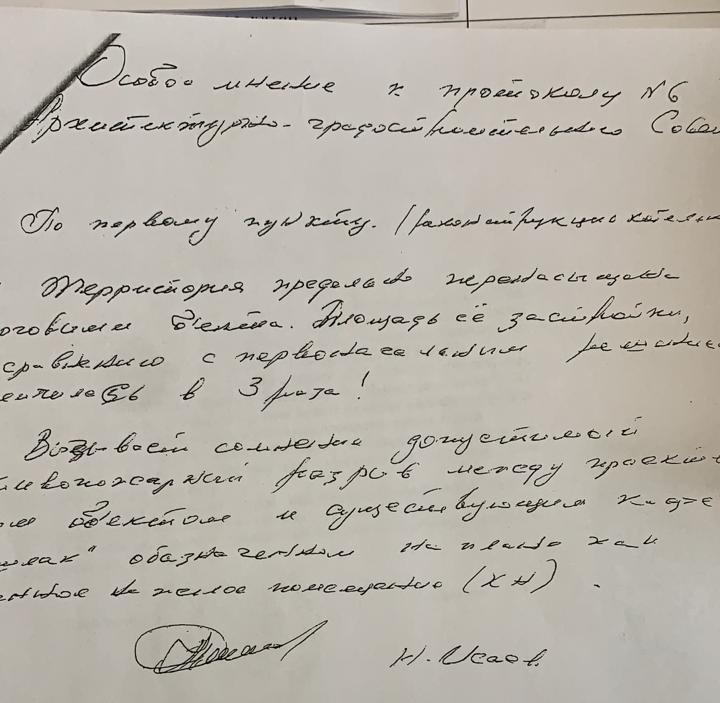 Особое мнение к протоколу N6
Архитектурно-градостроительного Сове
По первому пункту. (реконструкция котель
Территория предельно перенасыщена
говыми объекта. Площадь её застройки,
сравнению с первоначальным решение
в 3 раза!
Вызывает сомнения допустимый
ивопожарный разрыв между проект
объектом и существующим кафе
шлак" обозначенном на плане как
нежилое помещение (КН).
Н. Исаев.